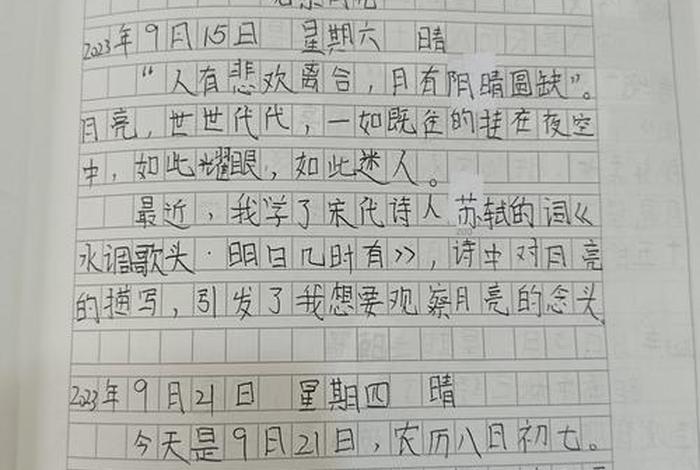 2023年9月15日 星期六 晴
“人有悲欢离合，月有阴晴圆缺”。
月亮，世世代代，一如既往的挂在夜空
中，如此耀眼，如此迷人。
最近，我学了宋代诗人苏轼的词《
水调歌头·明日几时有》，诗中对月亮
的描写，引发了我想要观察月亮的念头
2023年9月21日 星期四 晴
今天是9月21日，农历八日初七。